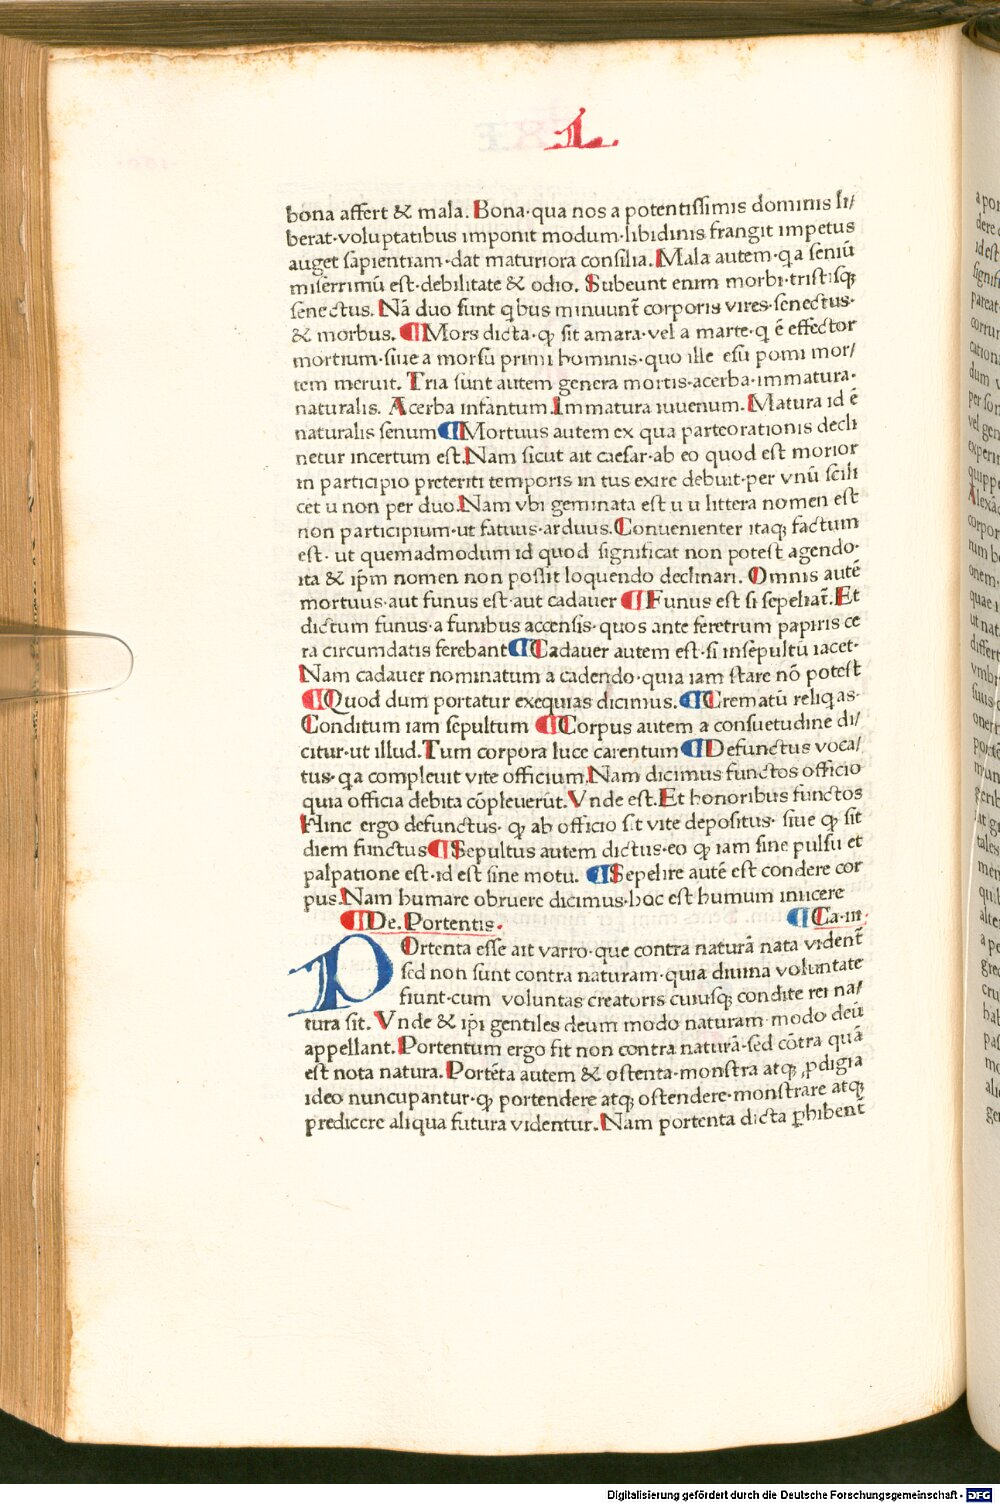 L.
bona affert & mala. Bona·qua nos a potentissimis dominis li/
berat·voluptatibus imponit modum·libidinis frangit impetus
auget sapientiam·dat maturiora consilia. Mala autem·qa seniū
miserrimū est·debilitate & odio. Subeunt enim morbi·tristisqꝫ
senectus. Nā duo sunt qbus minuunt̄ corporis vires·senectus·
& morbus. ¶ Mors dicta·ꝙ sit amara·vel a marte·q ē effector
mortium·siue a morsu primi hominis·quo ille esu pomi mor/
tem meruit. Tria sunt autem genera mortis·acerba·immatura·
naturalis. Acerba infantum. Immatura iuuenum. Matura id ē
naturalis senum ¶ Mortuus autem ex qua parteorationis decli
netur incertum est. Nam sicut ait caesar·ab eo quod est morior
in participio preteriti temporis in tus exire debuit·per vnū scili
cet u non per duo. Nam vbi geminata est u u littera nomen est
non participium·ut fatuus·arduus. Conuenienter itaqꝫ factum
est· ut quemadmodum id quod significat non potest agendo·
ita & ip̄m nomen non possit loquendo declinari. Omnis autē
mortuus·aut funus est·aut cadauer ¶ Funus est si sepeliat̄. Et
dictum funus·a funibus accensis·quos ante feretrum papiris ce
ra circumdatis ferebant ¶ Cadauer autem est·si insepultū iacet·
Nam cadauer nominatum a cadendo·quia iam stare nō potest
¶ Quod dum portatur exequias dicimus. ¶ Crematū reliqas·
Conditum iam sepultum ¶ Corpus autem a consuetudine di/
citur·ut illud. Tum corpora luce carentum ¶ Defunctus voca/
tus·qa compleuit vite officium. Nam dicimus functos officio
quia officia debita cōpleuerūt. Vnde est. Et honoribus functos
Hinc ergo defunctus· ꝙ ab officio sit vite depositus· siue ꝙ sit
diem functus ¶ Sepultus autem dictus·eo ꝙ iam sine pulsu et
palpatione est·id est sine motu. ¶ Sepelire autē est condere cor
pus. Nam humare obruere dicimus·hoc est humum iniicere
¶ De. Portentis. ¶ Ca·iii·
POrtenta esse ait varro·que contra naturā nata vident̄
sed non sunt contra naturam·quia diuina voluntate
fiunt·cum voluntas creatoris cuiusqꝫ condite rei na/
tura sit. Vnde & ip̄i gentiles deum modo naturam·modo deū
appellant. Portentum ergo fit non contra naturā·sed cōtra quā
est nota natura. Portēta autem & ostenta·monstra atqꝫ ꝓdigia
ideo nuncupantur·ꝙ portendere atqꝫ ostendere·monstrare atqꝫ
predicere aliqua futura videntur. Nam portenta dicta ꝑhibent̄
Digitalisierung gefördert durch die Deutsche Forschungsgemeinschaft - DFG